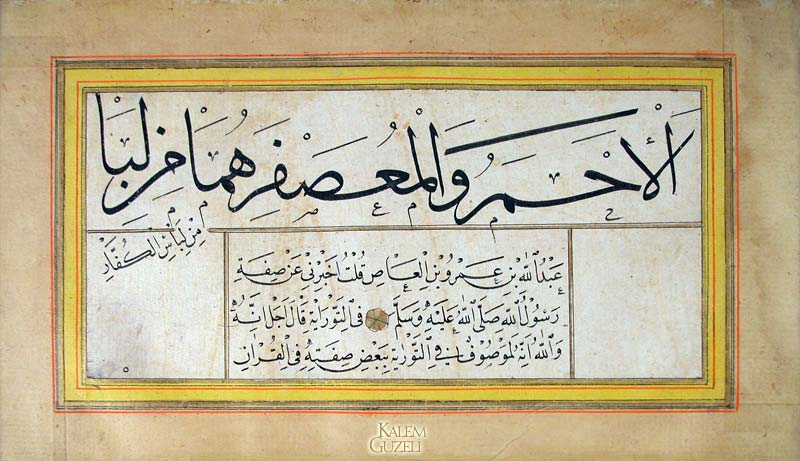 الأحمر والمعصفر هما من لبا
من لباس الكفار
عبد الله بن عمرو بن العاص قلت اخبرني عن صفة
رسول الله صلى الله عليه وسلم في التوراية قال اجل انه
والله انه لموصوف في التورية ببعض صفته في القران
KALEM
GÜZELİ